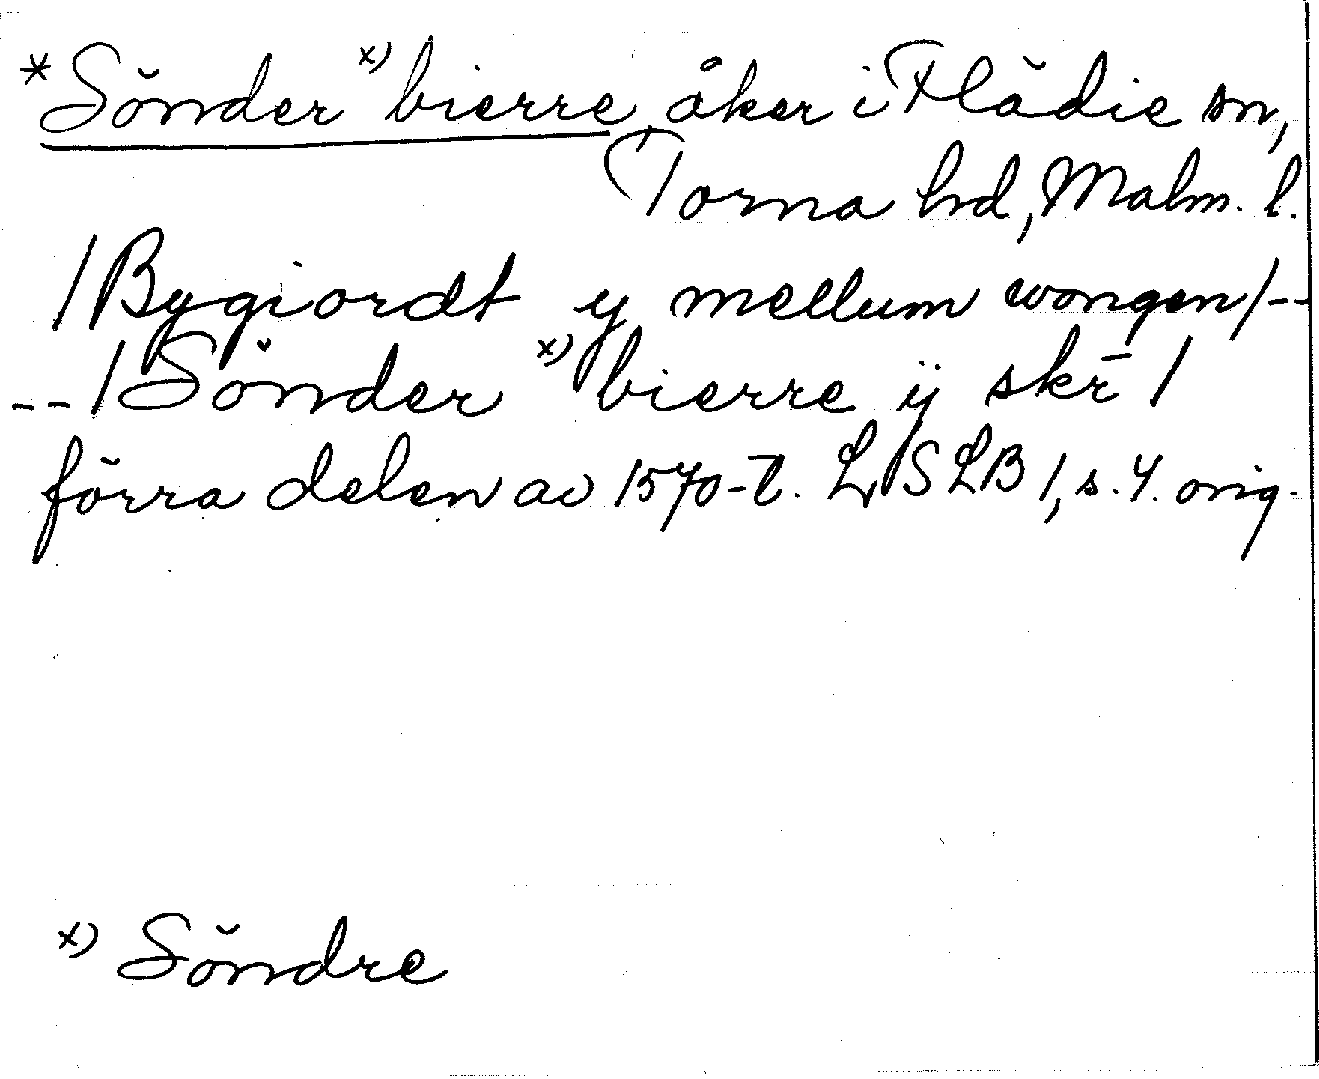 *Sönder x) bierre, åker i Flädie sn,
Torna hd, Malm. l.
/Bygiordt y mellum wongen/--
--/Sönder x) bierre ij skr̄ /
förra delen av 1570-t. LSLB 1, s. 4. orig.
x) Söndre